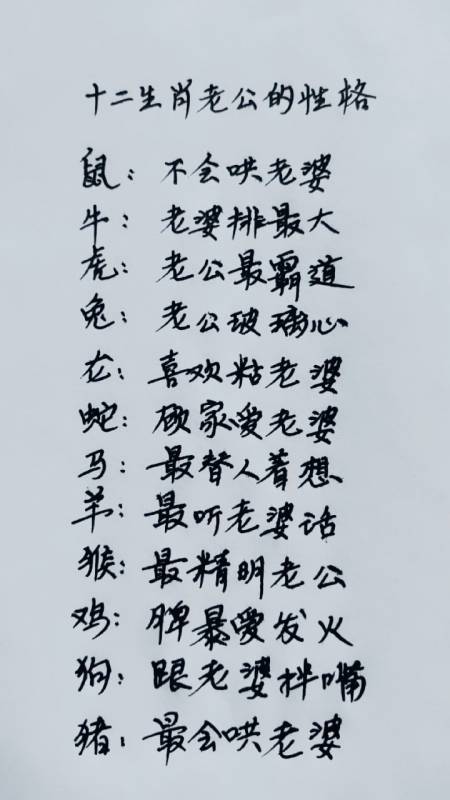 十二生肖老公的性格
鼠：不会哄老婆
牛：老婆排最大
虎：老公最霸道
兔：老公玻璃心
龙：喜欢粘老婆
蛇：顾家爱老婆
马：最替人着想
羊：最听老婆话
猴：最精明老公
鸡：脾暴爱发火
狗：跟老婆拌嘴
猪：最会哄老婆